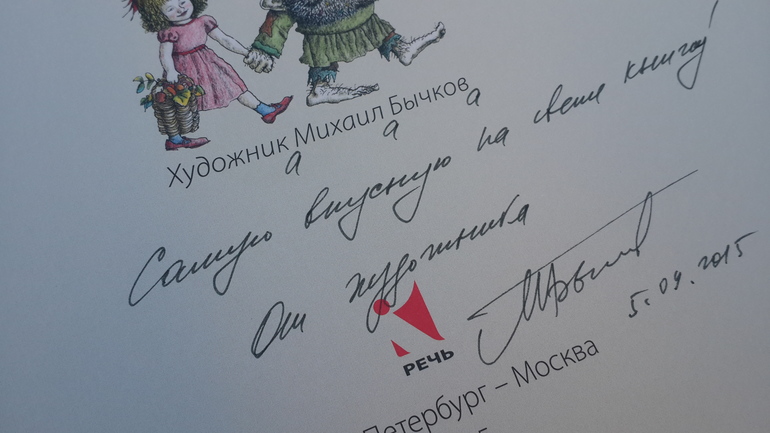 Художник Михаил Бычков
а а а
Самую вкусную на свете книгу!
От художника
5.09.2015
РЕЧЬ
Петербург – Москва